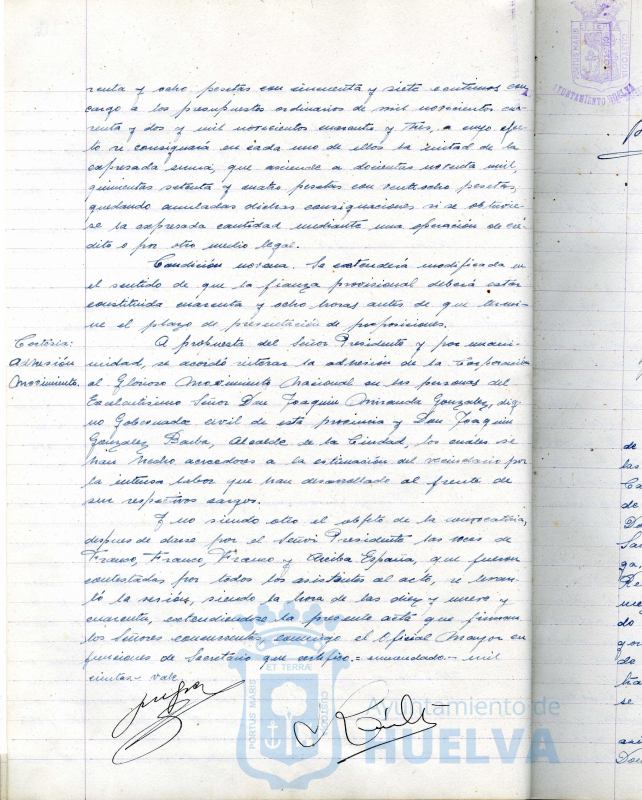 renta y ocho pesetas con cincuenta y siete centimos con
cargo a los presupuestos ordinarios de mil novecientos cua-
renta y dos y mil novecientos cuarenta y tres, a cuyo efec-
to se consignará en cada uno de ellos la mitad de la
expresada suma, que asciende a doscientas noventa mil,
quinientas setenta y cuatro pesetas con veintiocho pesetas,
quedando anuladas dichas consignaciones si se obtuvie-
se la expresada cantidad mediante una operación de cré-
dito o por otro medio legal.
Condición novena. Se entenderá modificada en
el sentido de que la fianza provisional deberá estar
constituida cuarenta y ocho horas antes de que termi-
ne el plazo de presentación de proposiciones.
Cortesia:
Adhesión
Movimiento.
A propuesta del Señor Presidente y por unani-
midad, se acordó reiterar la adhesión de la Corporación
al Glorioso Movimiento Nacional en las personas del
Excelentísimo Señor Don Joaquin Miranda Gonzalez, dig-
no Gobernador civil de esta provincia y Don Joaquin
González Barba, Alcalde de la Ciudad, los cuales se
han hecho acreedores a la estimación del vecindario por
la intensa labor que han desarrollado al frente de
sus respectivos cargos.
Y no siendo otro el objeto de la convocatoria,
despues de darse por el Señor Presidente las voces de
Franco, Franco, Franco y Arriba España, que fueron
contestadas por todos los asistentes al acto, se levan-
tó la sesión, siendo la hora de las diez y nueve y
cuarenta, extendiendose la presente acta que firman
los Señores concurrentes, conmigo el Oficial Mayor en
funciones de Secretario que certifico.= enmendado - mil
- vale
PORTUS MARIS ET TERRÆ CUSTODIA
Ayuntamiento de
HUELVA
PORTUS MARIS ET TERRÆ CUSTODIA
AYUNTAMIENTO HUELVA
de
las
Ca
de
Do
Sa
ga,
Re
do
go
do
se
asi